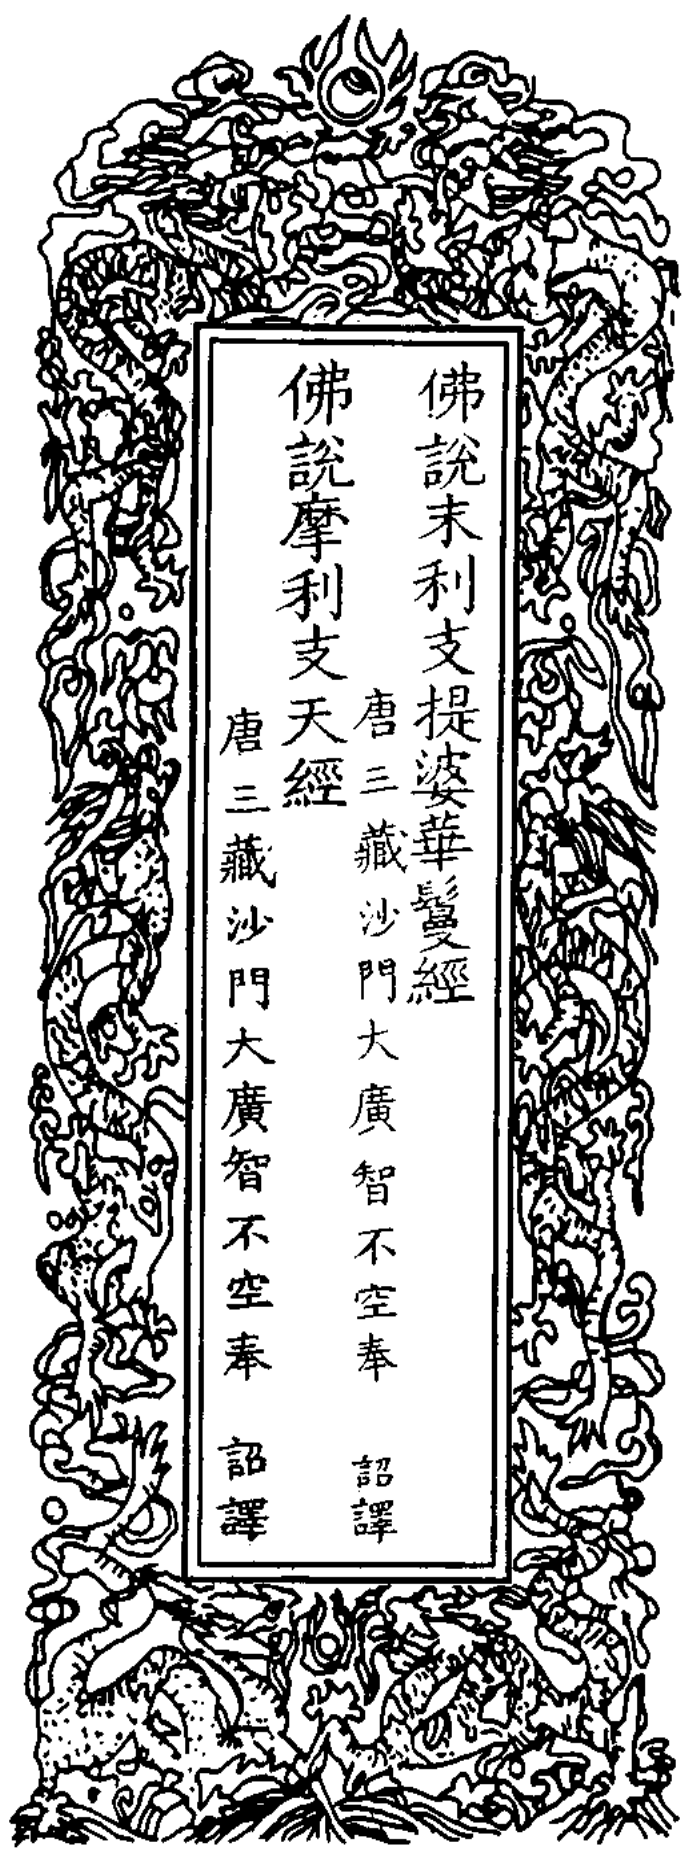 佛說末利支提婆華鬘經
唐三藏沙門大廣智不空奉 詔譯
佛說摩利支天經
唐三藏沙門大廣智不空奉 詔譯